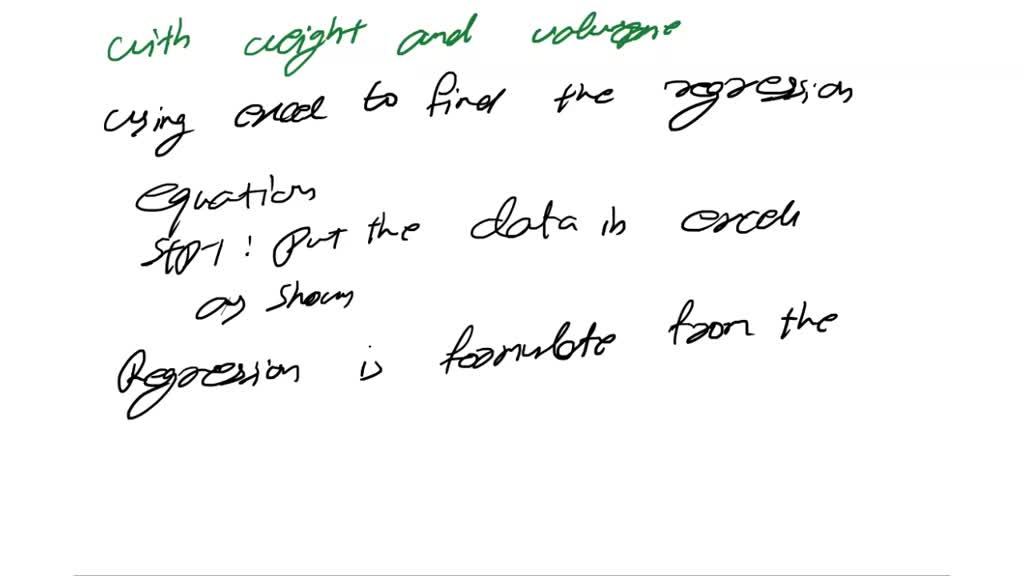 with weight and volume
using excel to find the regression
equation
Step-1: Put the data in excel
as shown
Regression is formulate from the